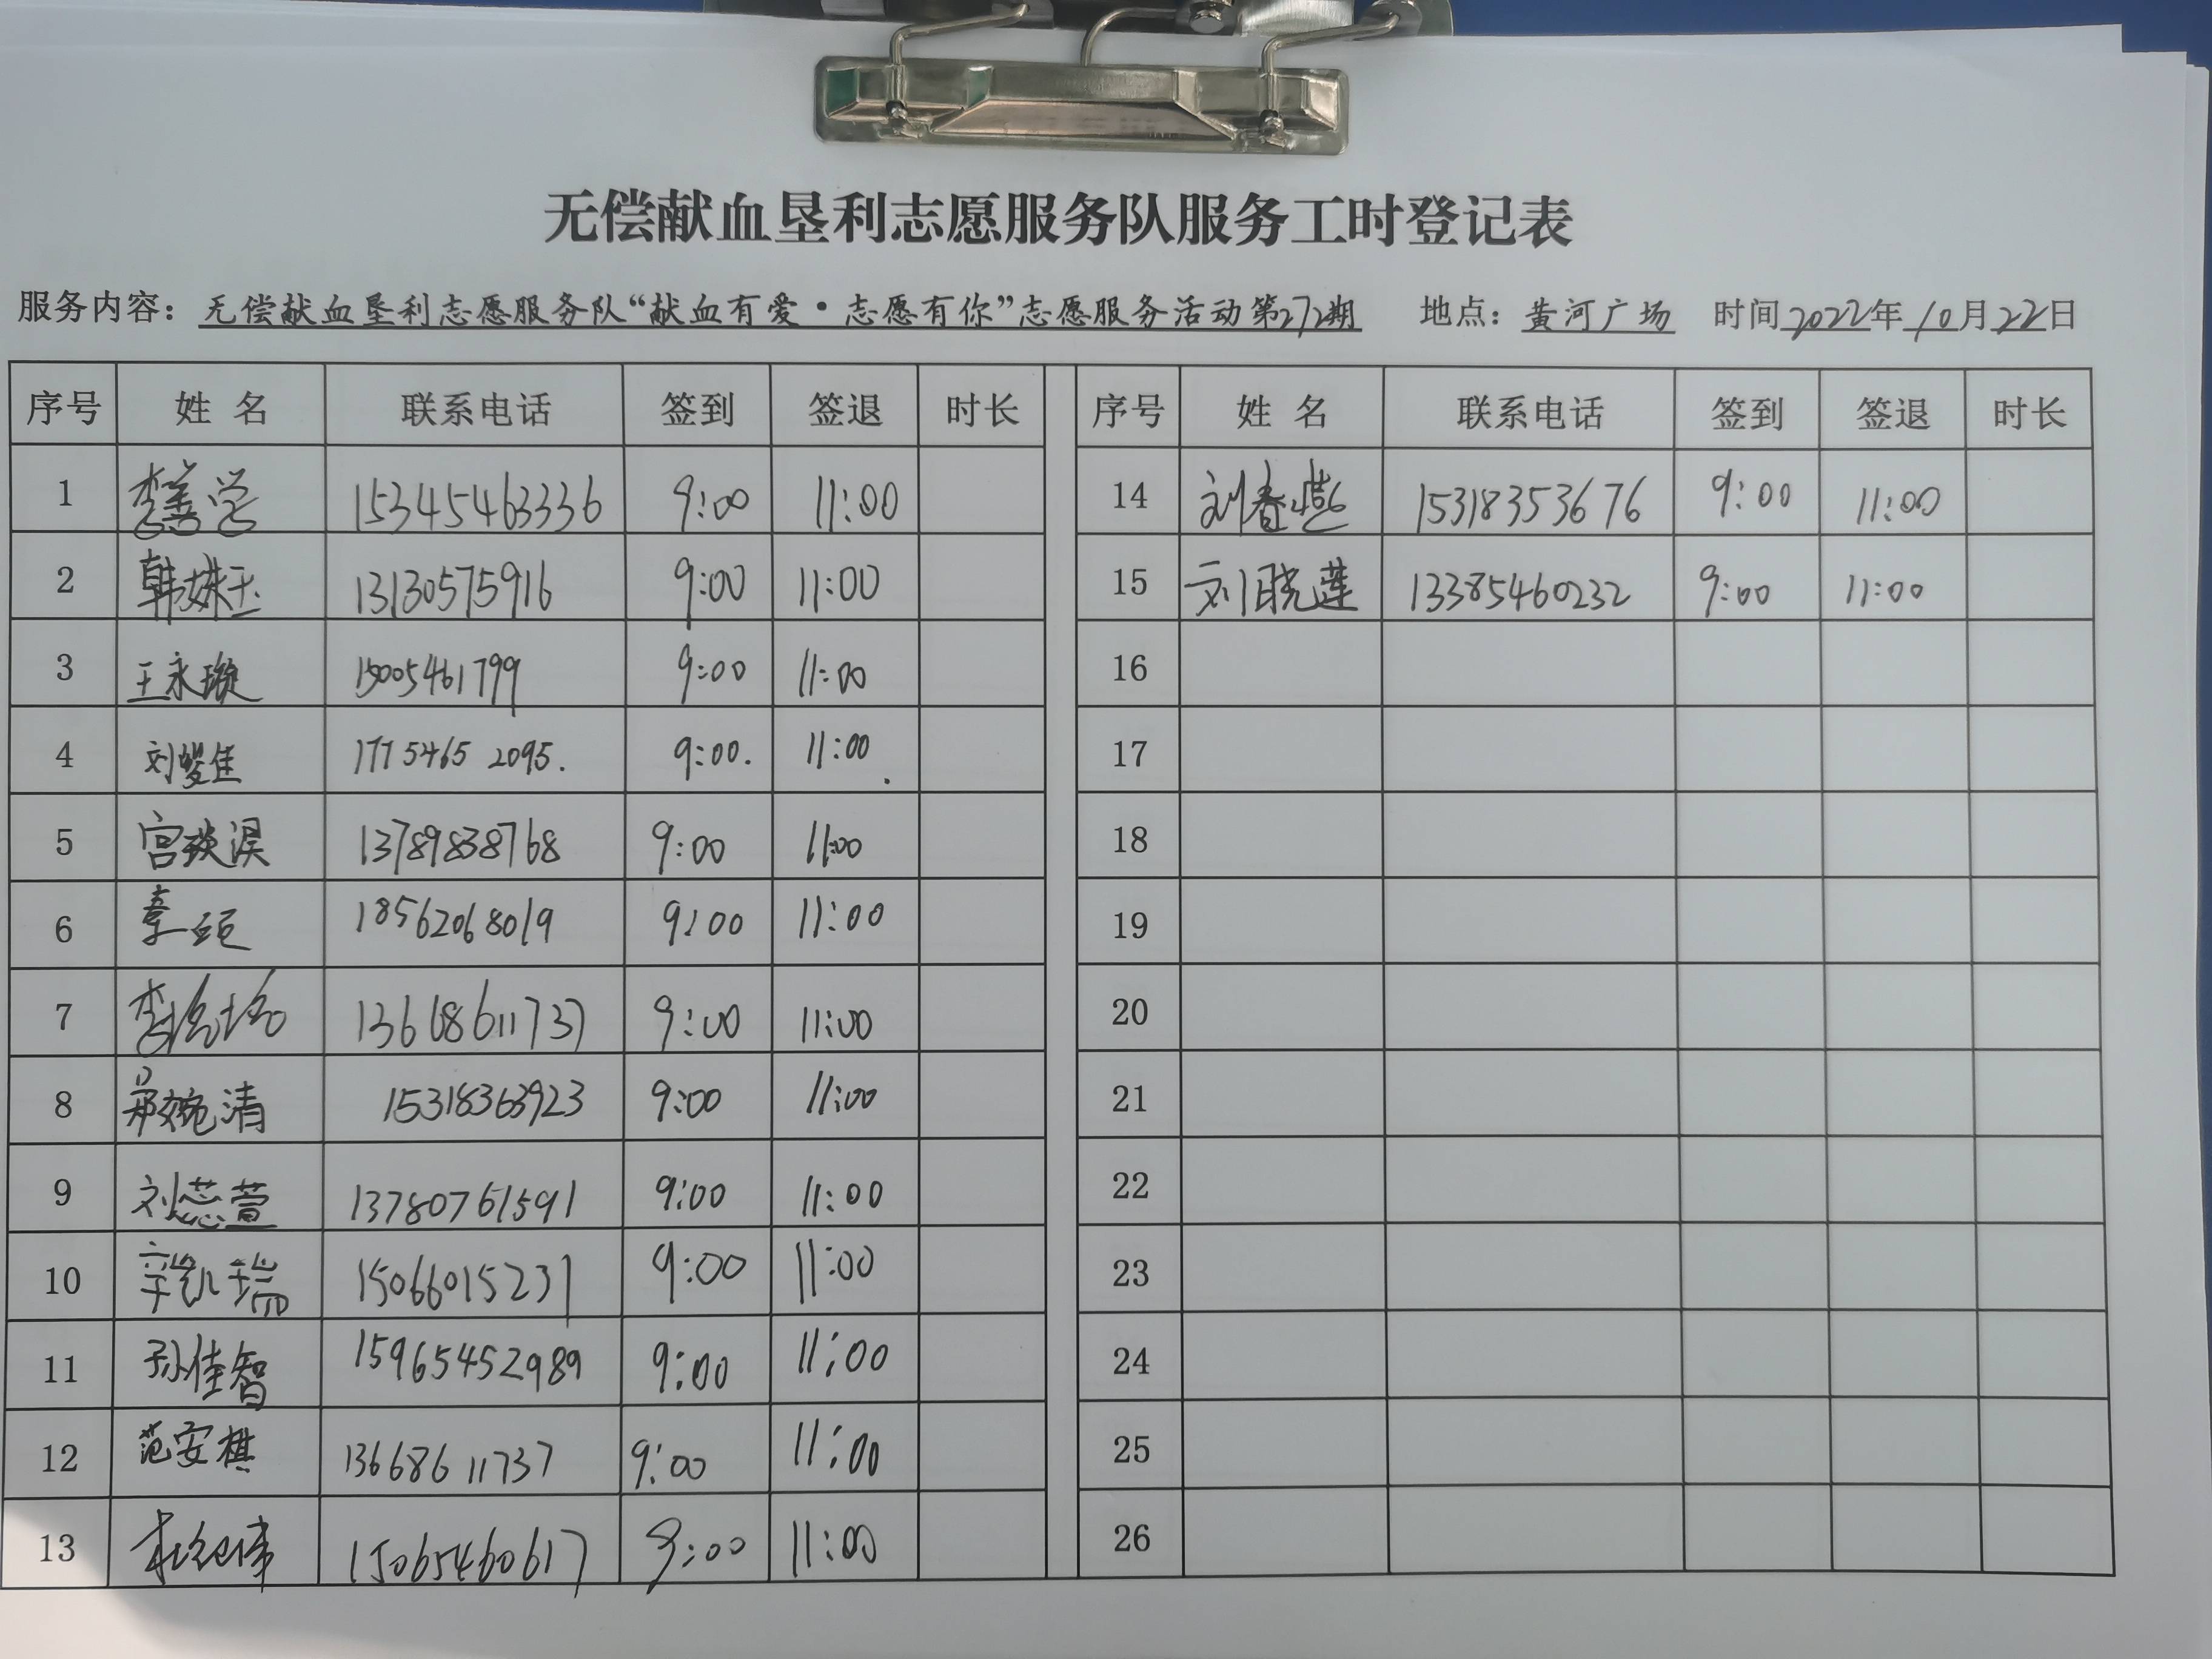 无偿献血垦利志愿服务队服务工时登记表
服务内容：无偿献血垦利志愿服务队“献血有爱·志愿有你”志愿服务活动第272期 地点：黄河广场 时间2022年10月22日
序号 姓名 联系电话 签到 签退 时长 序号 姓名 联系电话 签到 签退 时长
1 李善学 15345463336 9:00 11:00 14 刘春燕 15318353676 9:00 11:00
2 韩姝玉 13130575916 9:00 11:00 15 刘晓莲 13385460232 9:00 11:00
3 王永璇 15005461799 9:00 11:00 16
4 17754652095. 9:00. 11:00. 17
5 13789838768 9:00 11:00 18
6 18562068019 9:00 11:00 19
7 13668611737 9:00 11:00 20
8 15318363923 9:00 11:00 21
9 刘蕊萱 13780761591 9:00 11:00 22
10 辛凯瑞 15066015231 9:00 11:00 23
11 孙佳智 15965452989 9:00 11:00 24
12 范安棋 13668611737 9:00 11:00 25
13 15065460617 9:00 11:00 26